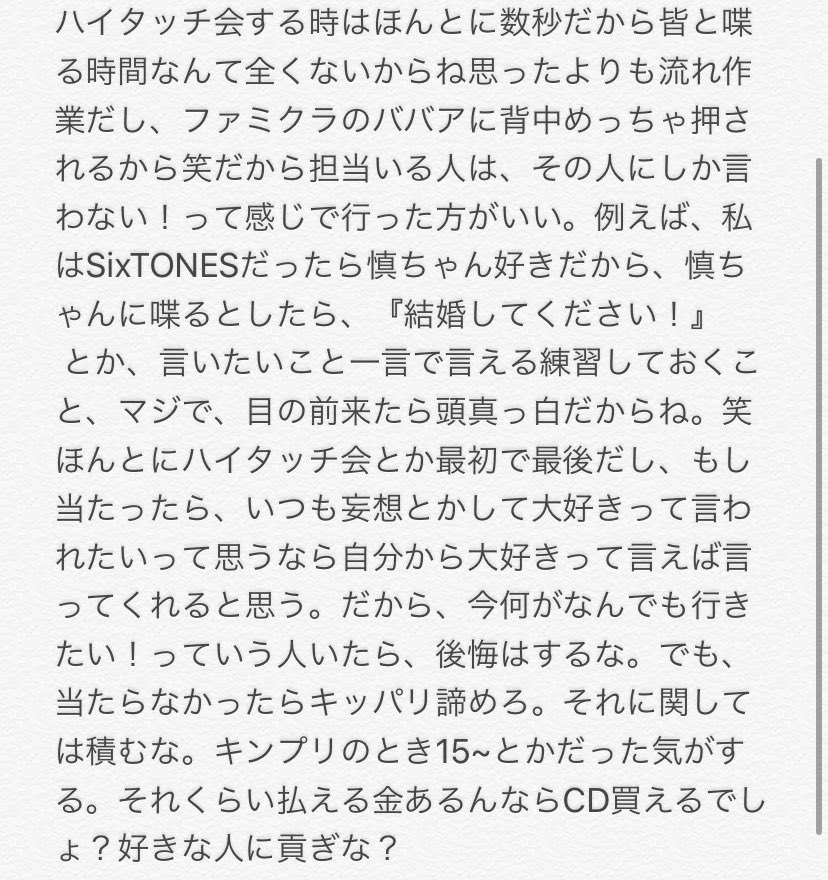 ハイタッチ会する時はほんとに数秒だから皆と喋
る時間なんて全くないからね思ったよりも流れ作
業だし、ファミクラのババアに背中めっちゃ押さ
れるから笑だから担当いる人は、その人にしか言
わない！って感じで行った方がいい。例えば、私
はSixTONESだったら慎ちゃん好きだから、慎ち
ゃんに喋るとしたら、『結婚してください！』
とか、言いたいこと一言で言える練習しておくこ
と、マジで、目の前来たら頭真っ白だからね。笑
ほんとにハイタッチ会とか最初で最後だし、もし
当たったら、いつも妄想とかして大好きって言わ
れたいって思うなら自分から大好きって言えば言
ってくれると思う。だから、今何がなんでも行き
たい！っていう人いたら、後悔はするな。でも、
当たらなかったらキッパリ諦めろ。それに関して
は積むな。キンプリのとき15~とかだった気がす
る。それくらい払える金あるんならCD買えるでし
ょ？好きな人に貢ぎな？